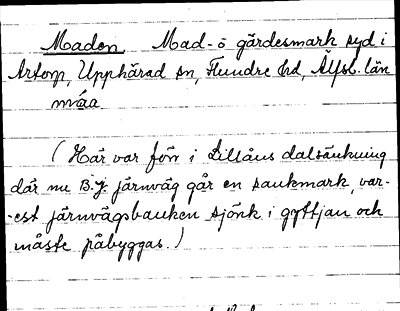 Maden Mad- o gärdesmark syd i
Artorp, Upphärad sn, Flundre hd, Älfsb. län
måa
(Här var förr i Lillåns dalsänkning
där nu B.J. järnväg går en sankmark, var-
-est järnvägsbanken sjönk i gyttjan och
måste påbyggas.)